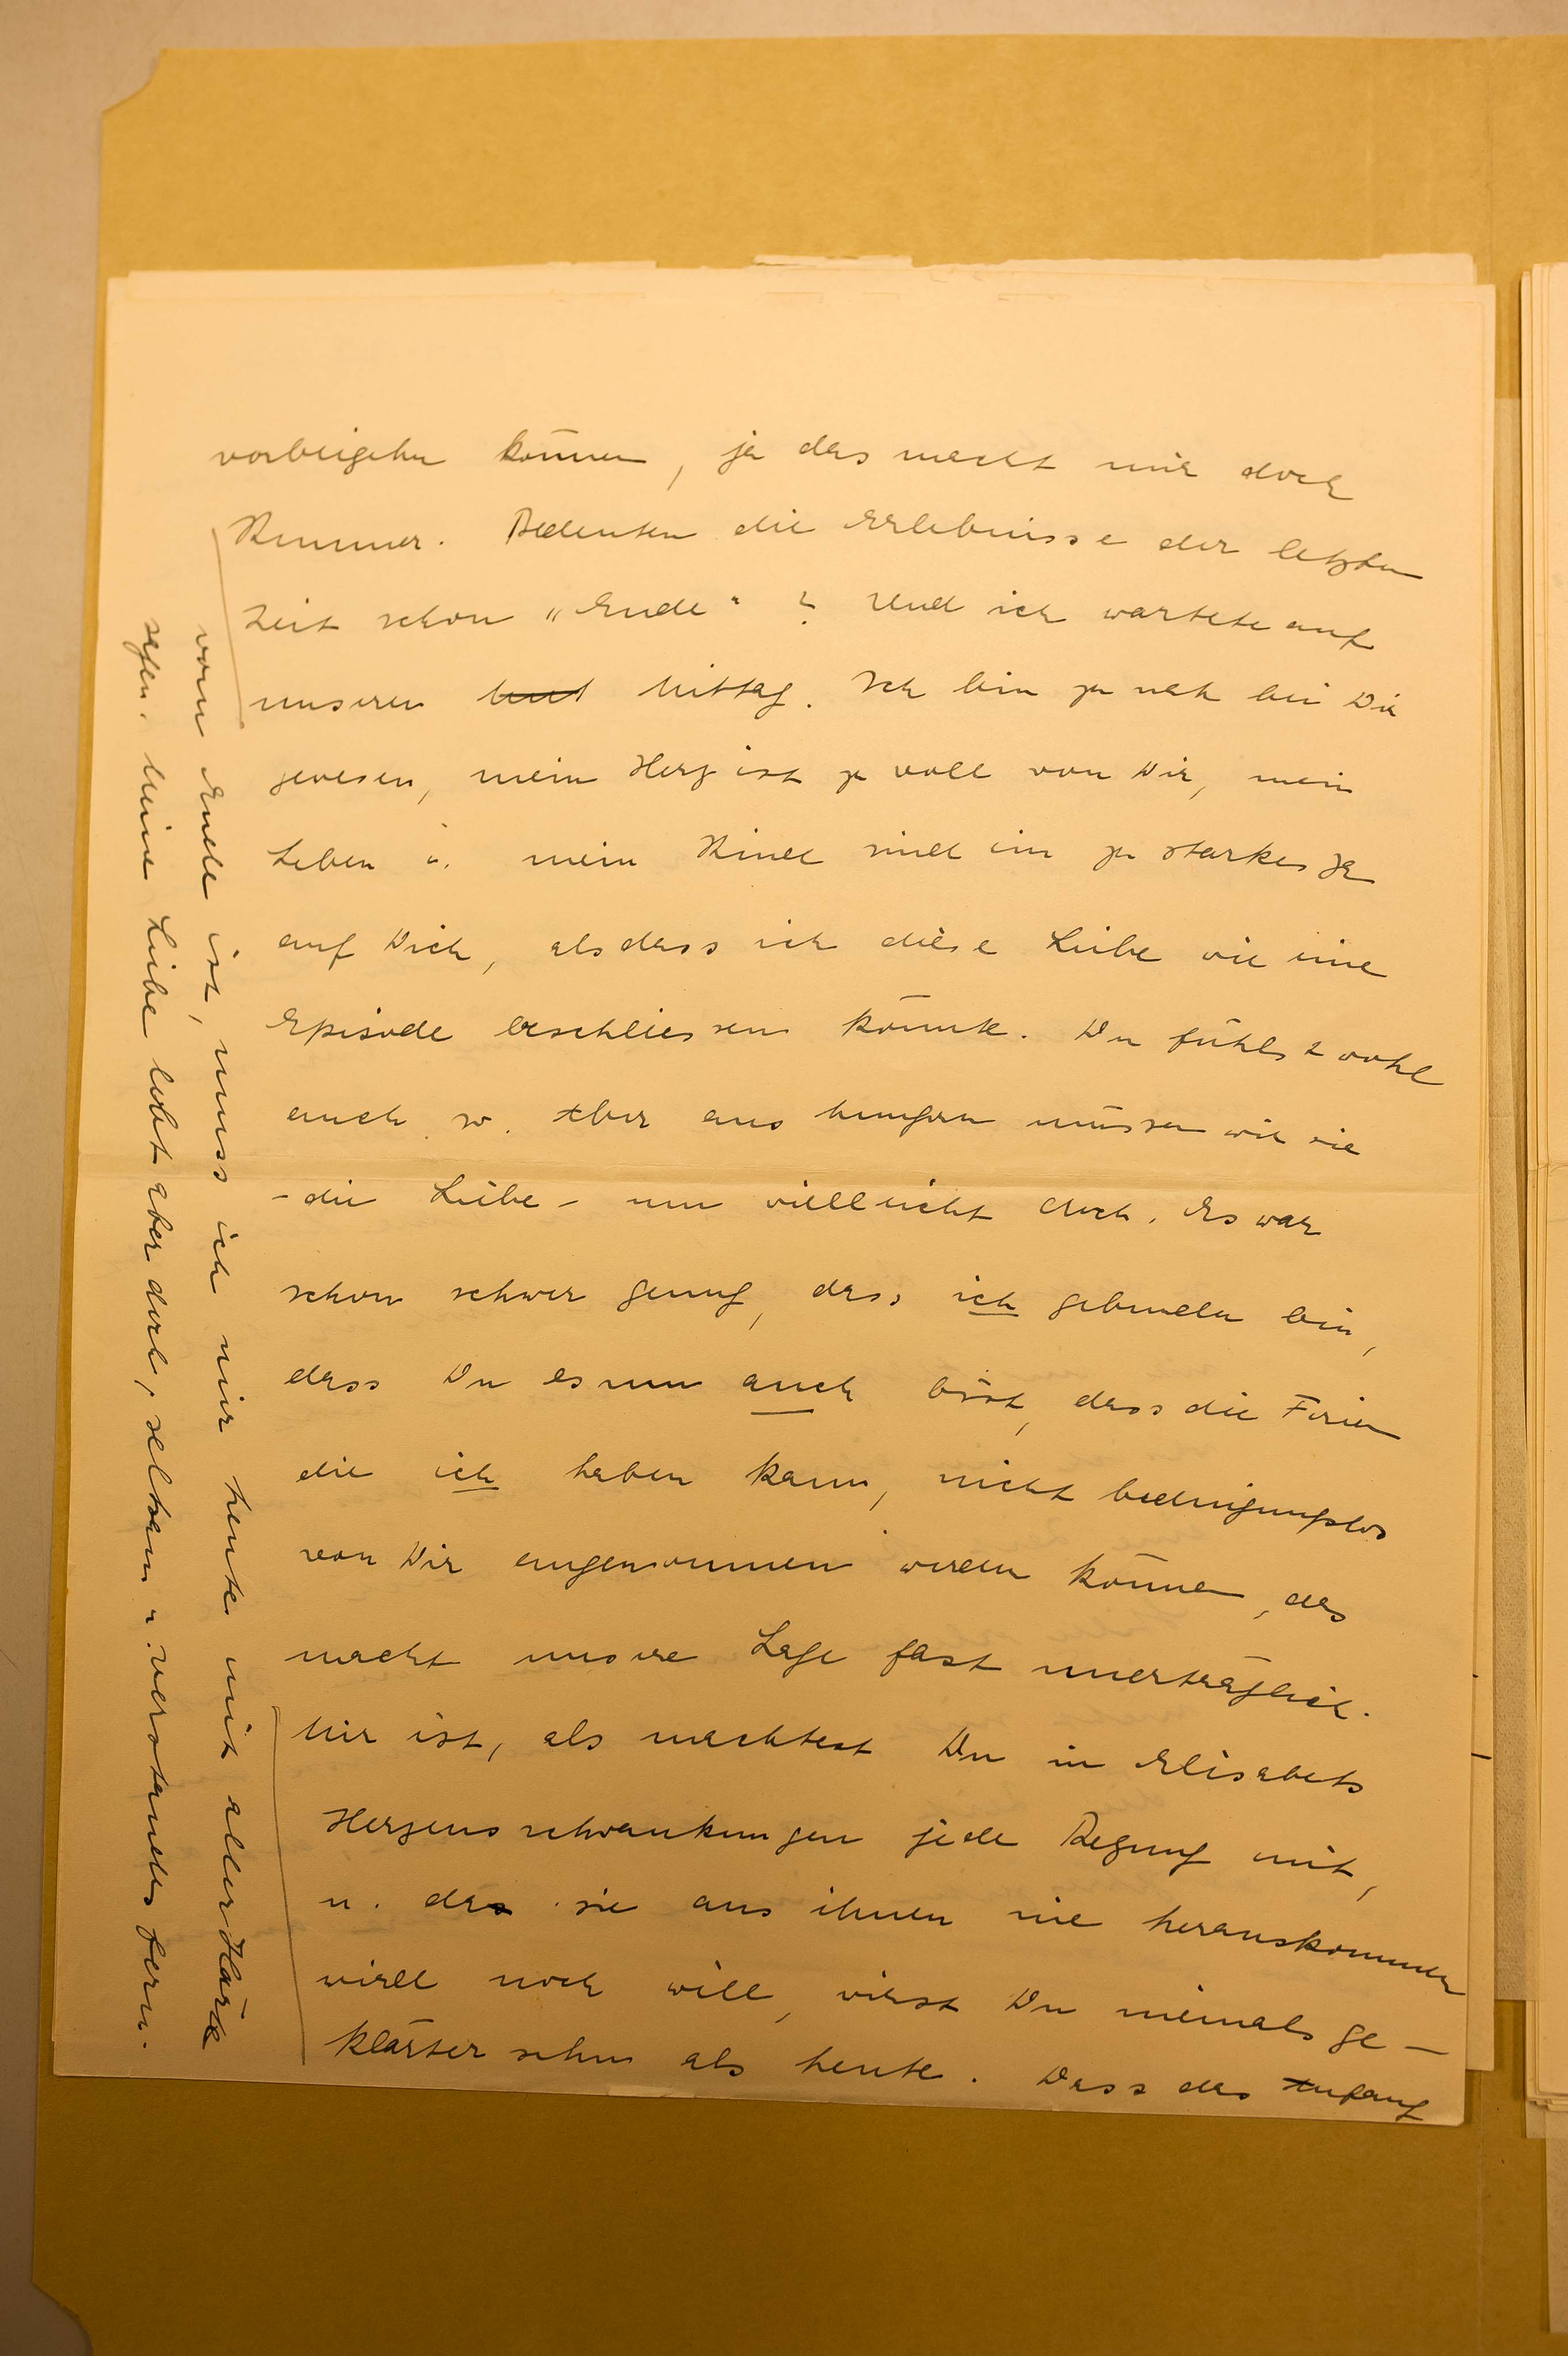 vorbeigehn können, ja das macht mir doch
Kummer. Bedeuten die Erlebnisse der letzten
Zeit schon „Ende“? Und ich wartete auf
unseren Mittag. Ich bin zu nah bei Dir
gewesen, mein Herz ist zu voll von Dir, mein
Leben u. mein Kind sind ein zu starkes Ja
auf Dich, als dass ich diese Liebe wie eine
Episode beschliessen könnte. Du fühlst wohl
auch so. Aber aushungern müssen wir sie
- die Liebe - nun vielleicht doch. Es war
schon schwer genug, dass ich gebunden bin,
dass Du es nun auch bist, dass die Ferien
die ich haben kann, nicht bedingungslos
von Dir angenommen werden können, das
macht unsere Lage fast unerträglich.
Mir ist, als machtest Du in Elisabets
Herzensschwankungen jede Regung mit,
u. das sie aus ihnen nie herauskommen
wird noch will, wirst Du niemals ge-
klärter sehn als heute. Dass das Anfang
vom Ende ist, muss ich mir heute mit aller Härte
sagen. Meine Liebe lebt aber doch, seltsam u. verstandesfern.